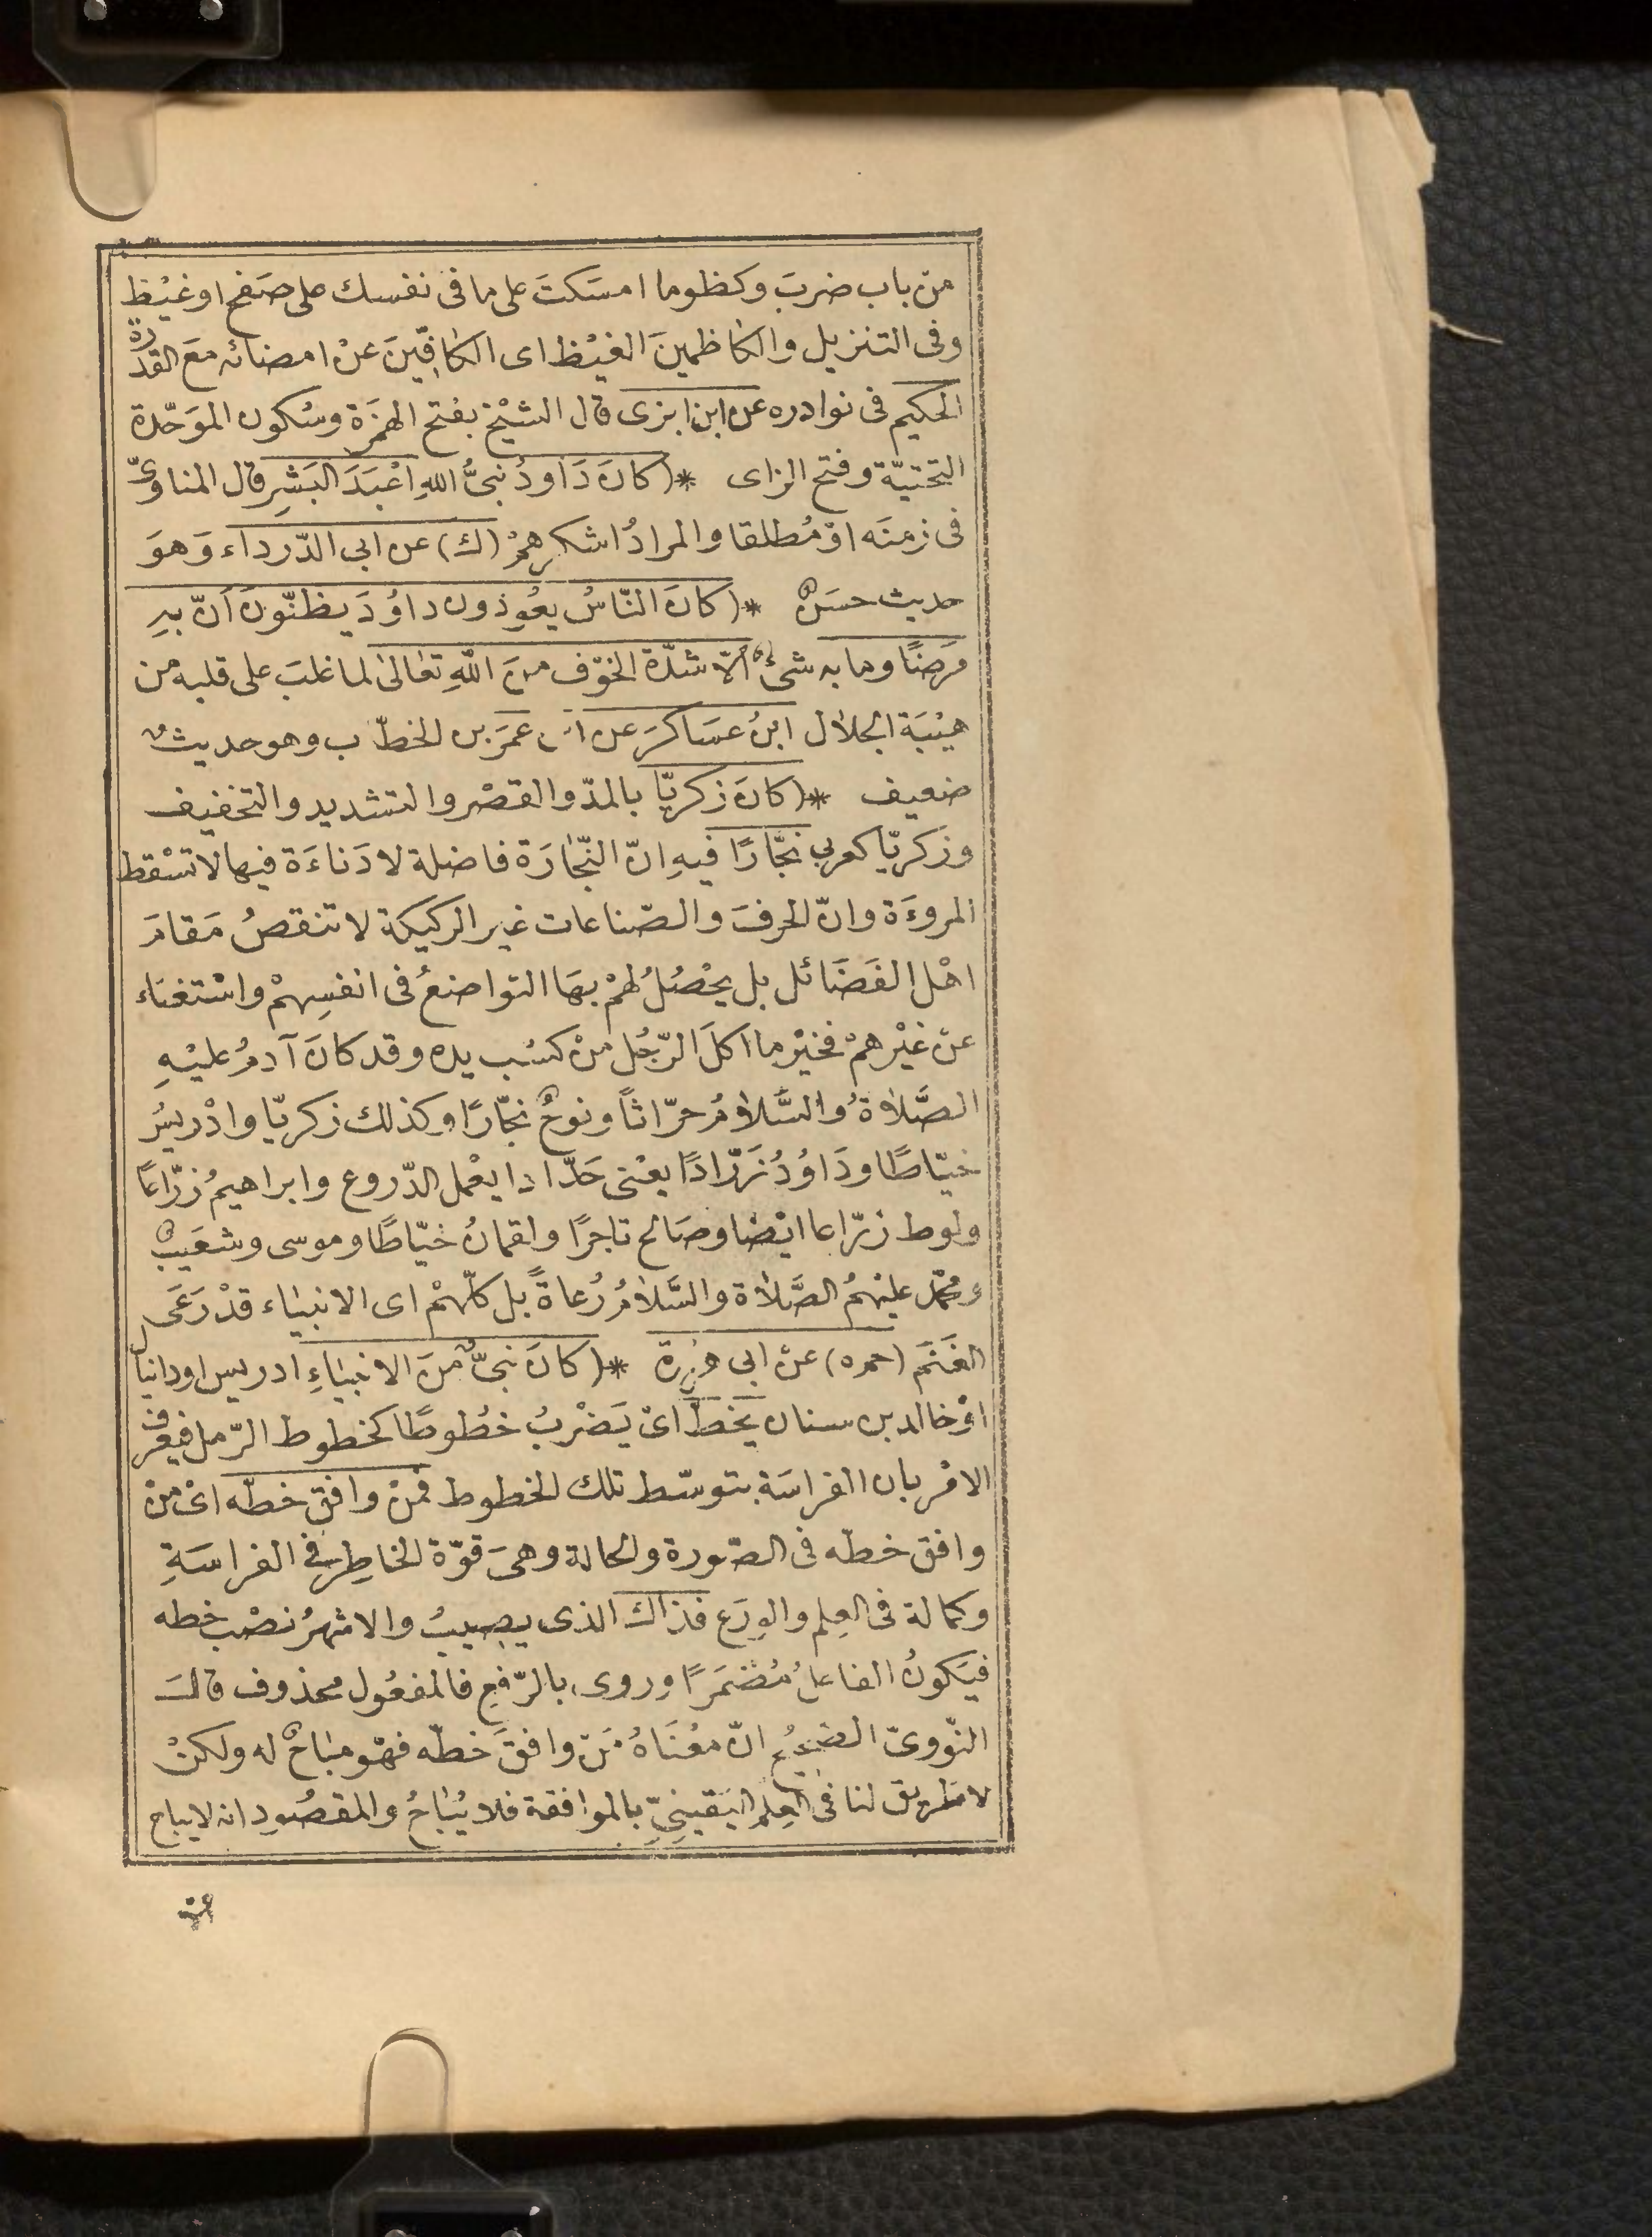 من باب ضربَ وكظوما امسَكتَ على ما فى نفسك على صَفح اوغيْظ
وفى التنزيل والكاظمينَ الغيْظ اى الكافّينَ عنْ امضائه معَ القدرة
الحكيم فى نوادره عن ابن ابزى قال الشيْخ بفتح الهمزَة وسُكون الموَحّدة
التحتيّة وفتح الزاى *( كانَ دَاودُ نبىُّ اللهِ اعْبَدَ البَشِر قال المناوىّ
فى زمنَه اوْ مُطلقا والمرادُ اشكرهمْ (ك) عن ابى الدّرداء وَهوَ
حديث حسَنٌ *( كانَ النّاسُ يعُوذون داوُدَ يظنّونَ اَنّ بهِ
مَرَضًا وما به شىءٌ اِلّا شدّة الخوْف منَ اللهِ تعَالىٰ لما غلبَ على قلبه من
هيْبَة الجلال ابنُ عسَاكرَ عن ابن عمَرَ بن الخطّاب وهو حديثٌ
ضعيف *( كانَ زكريّا بالمدّ والقصْر والتشديد والتخفيف
وزكريّا كعربى نجّارًا فيهِ انّ النّجَارَة فاضلة لا دَناءَة فيها لا تسْقط
المروءَة وانّ الحرفَ والصّناعات غير الركيكة لا تنقصُ مَقامَ
اهْل الفَضَائل بل يحْصُلُ لهمْ بهَا التواضعُ فى انفسِهمْ واسْتغنَاء
عنْ غيْرهمْ فخيْر ما اكلَ الرّجُل منْ كسْب يده وقد كانَ آدمُ عليْهِ
الصَّلاةُ والسَّلامُ حرّاثاً ونوحٌ نجّارًا وكذلك زكريّا وادْريسُ
خيّاطًا ودَاوُدُ زَرّادًا يعْنى حَدّادا يعْمل الدّروع وابراهيمُ زرّاعًا
ولوط زرّاعا ايْضا وصَالح تاجرًا ولقمانُ خيّاطًا وموسى وشعَيبٌ
ومحمّد عليْهمُ الصَّلاة والسَّلامُ رُعاةً بل كلّهمْ اى الانبيَاء قدْ رَعَى
الغَنَم (حمه) عنْ ابى هريرة *( كانَ نبىٌّ منَ الانبيَاءِ ادريس اودانيال
اوْخالد بن سنان يَخطّ اىْ يَضْربُ خطُوطًا كخطوط الرّمل فيعْرف
الامْر بان الفراسَة بتوسّط تلك الخطوط فمنْ وافقَ خطّه اىْ منْ
وافق خطّه فى الصّورة والحالة وهىَ قوّة الخاطِر فى الفراسَةِ
وكمالة فى العِلم والورَع فذاكَ الذى يصيبُ والاشهرُ نصْب خطه
فيَكونُ الفاعلُ مُضْمَرًا وروى بالرّفع فالمفعُول محذوف قالَ
النّووىّ الصّحيحُ انّ معْنَاهُ مَنْ وافقَ خطّه فهْو مبَاحٌ له ولكنْ
لا طريق لنا فى العِلم اليَقينىّ بالموافقة فلا يُبَاحُ والمقصُود انه لا يباح